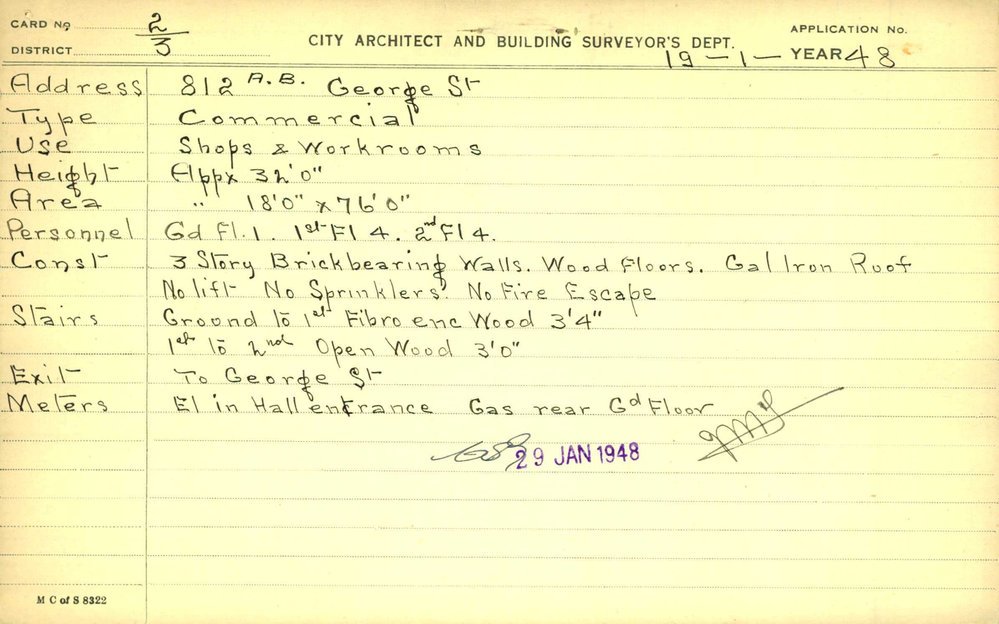 CARD No 2/3
DISTRICT
CITY ARCHITECT AND BUILDING SURVEYOR'S DEPT.
APPLICATION No.
19 - 1 - YEAR 48
Address 812 A.B. George St
Type Commercial
Use Shops & Workrooms
Height Appx 32'0"
Area " 18'0" x 76'0"
Personnel Gd Fl. 1. 1st Fl 4. 2nd Fl 4.
Const 3 Story Brickbearing Walls. Wood Floors. Gal Iron Roof
No lift No Sprinklers. No Fire Escape
Stairs Ground to 1st Fibro enc Wood 3'4"
1st to 2nd Open Wood 3'0"
Exit To George St
Meters El in Hall entrance Gas rear Gd Floor
29 JAN 1948
M C of S 8322